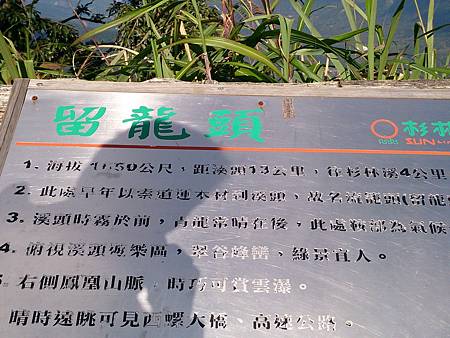 留龍頭
杉林
SUN
1. 海拔1650公尺,距溪頭13公里,往杉林溪4公里
2. 此處早年以索道運木材到溪頭,故名流籠頭(留龍
3. 溪頭時霧於前,青龍常晴在後,此處鞍部為氣候
4. 俯視溪頭遊樂區,翠谷峰巒、綠景宜人。
5. 右側鳳凰山脈,時巧可賞雲瀑。
晴時遠眺可見西螺大橋、高速公路。